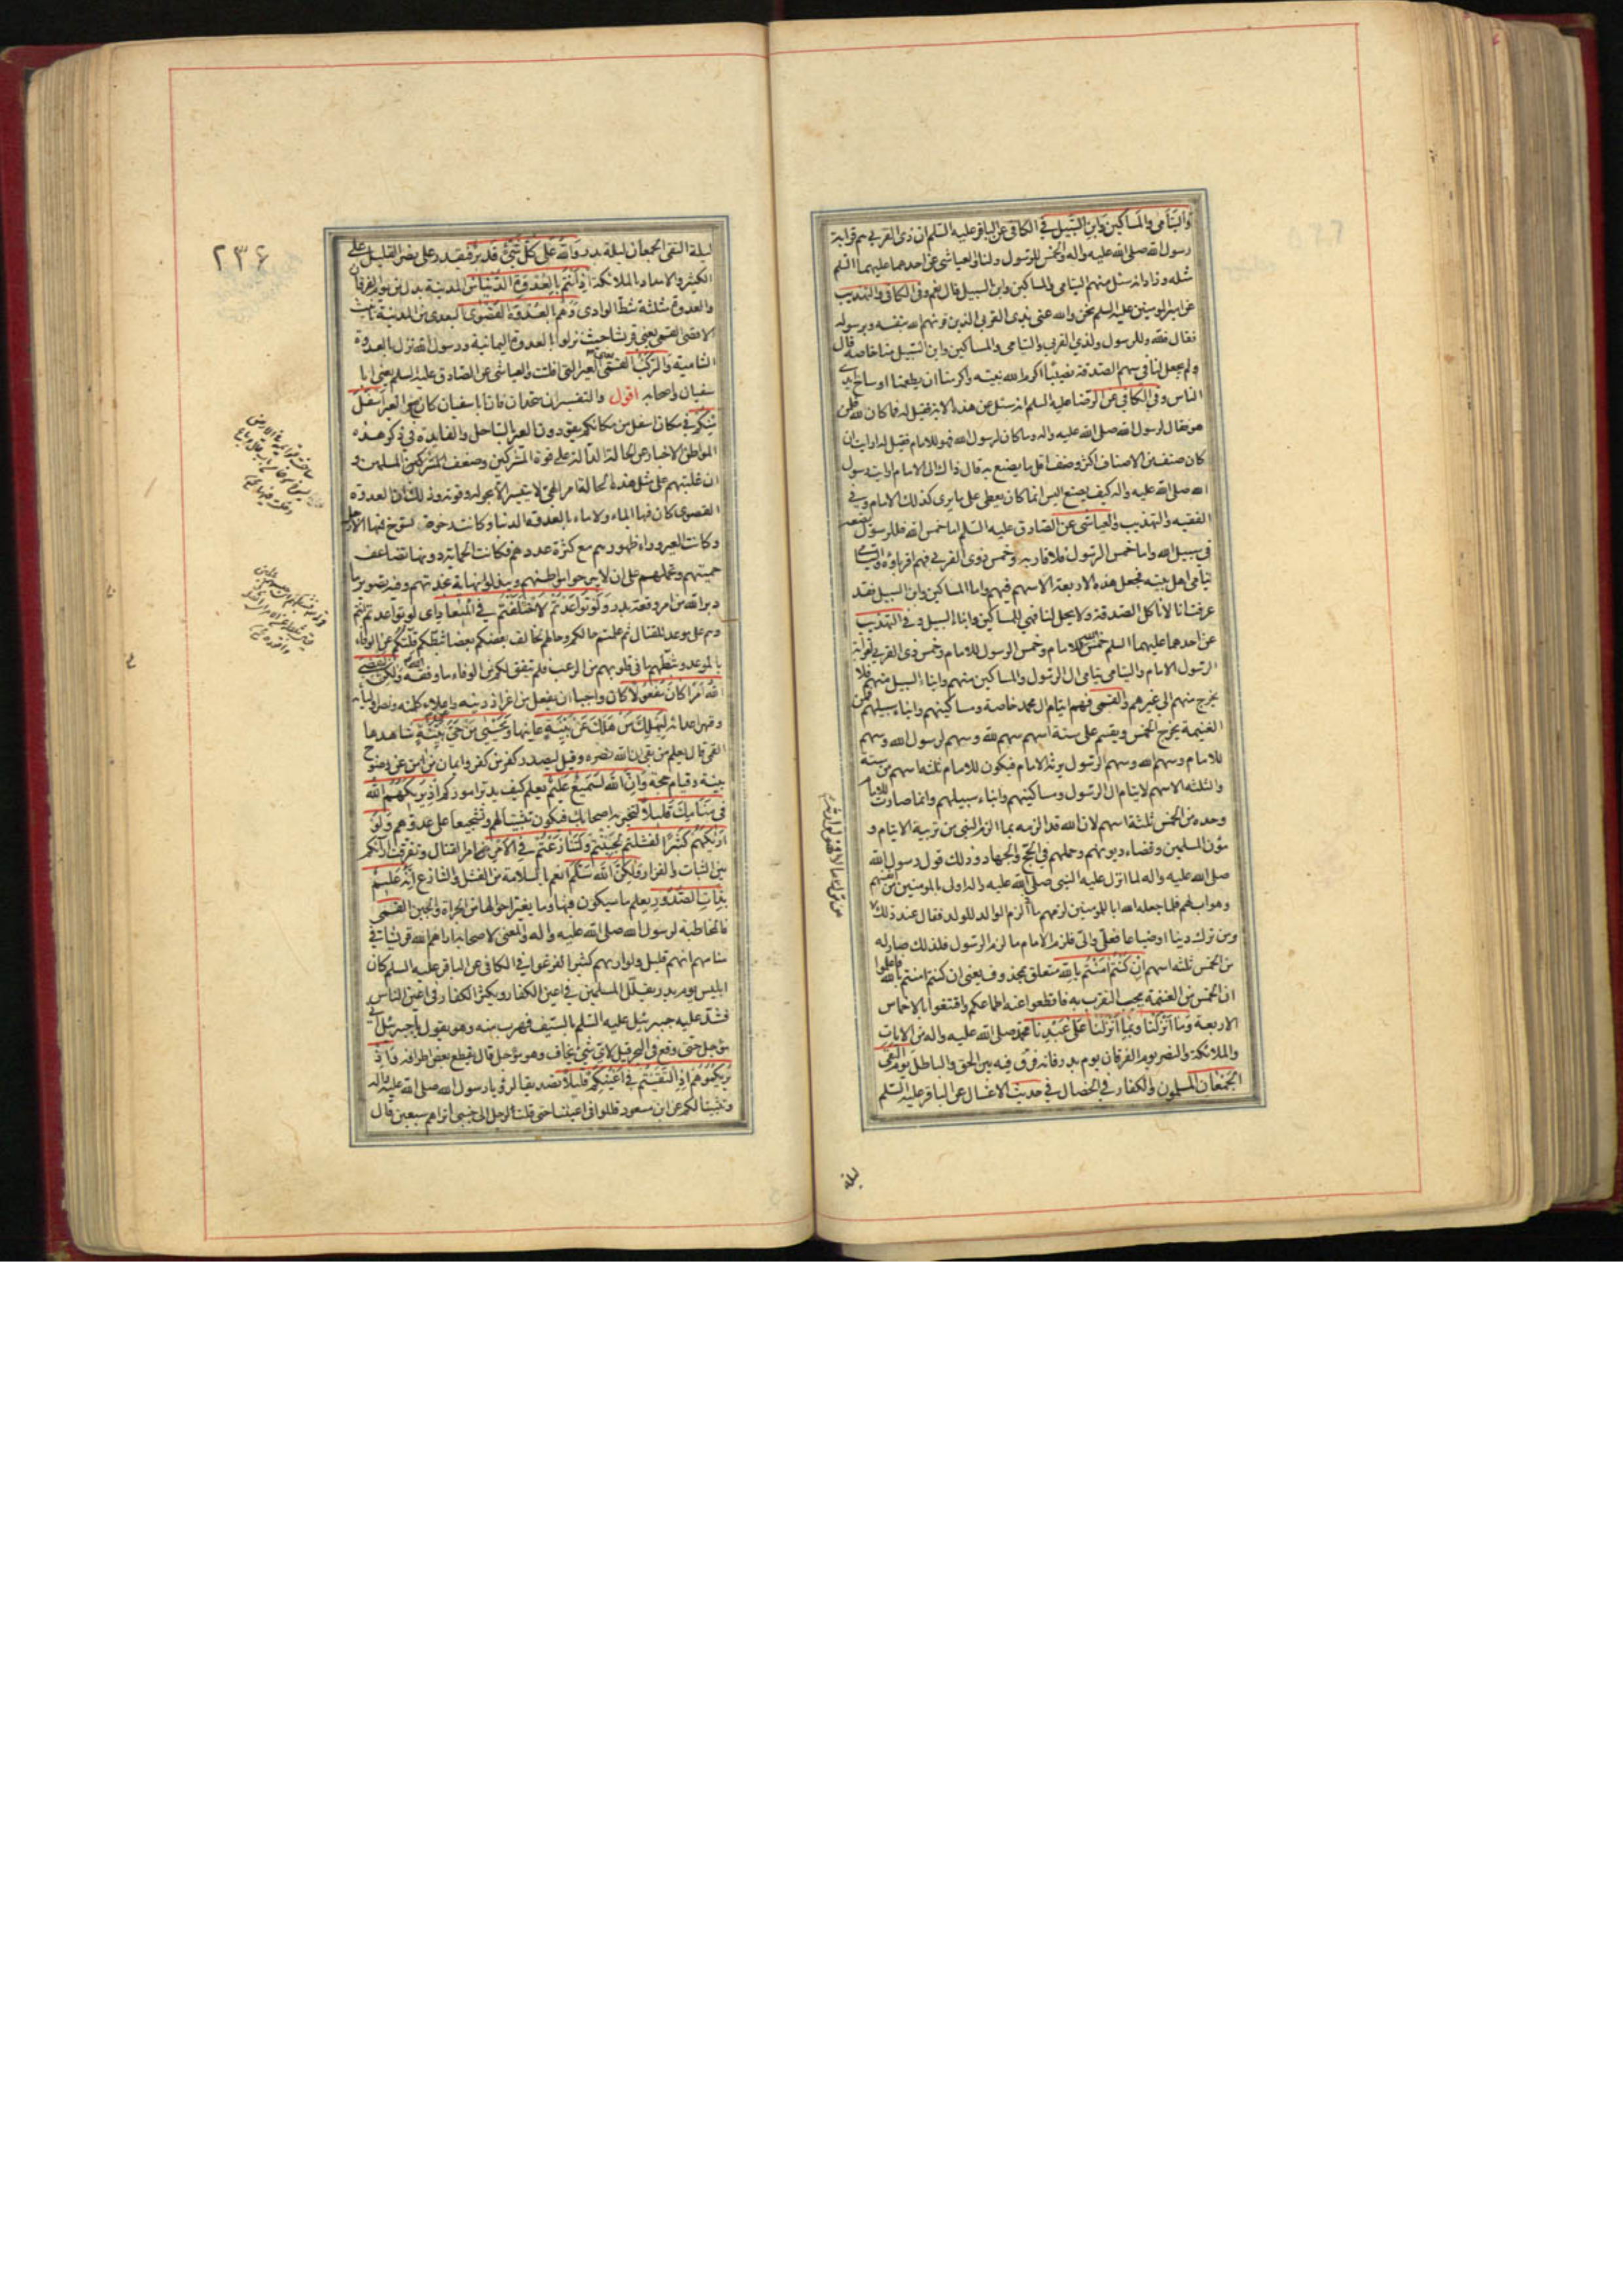 وَالْيَتَامى وَالْمَسَاكِينِ وَابْنِ السَّبِيلِ في الكافي عن الباقر عليه السلم ان ذي القربى هم قرابة
رسول الله صلى الله عليه واله والخمس للرسول ولنا والعياشي عن احدهما عليهما السلم
مثله وزاد انه سئل منهم اليتامى والمساكين وابن السبيل قال نعم وفي الكافي والتهذيب
عن امير المؤمنين عليه السلم نحن والله عنى بذي القربى الذين قرنهم الله بنفسه وبرسوله
فقال فلله وللرسول ولذي القربى واليتامى والمساكين وابن السبيل منا خاصة قال
ولم يجعل لنا في سهم الصدقة نصيبًا اكرم الله نبيه واكرمنا ان يطعمنا اوساخ ايدي
الناس وفي الكافي عن الرضا عليه السلم انه سئل عن هذه الاية فقيل له فما كان لله فلمن
هو فقال لرسول الله صلى الله عليه واله وما كان لرسول الله فهو للامام فقيل له ارايت ان
كان صنف من الاصناف اكثر وصنف اقل ما يصنع به قال ذاك الى الامام ارايت رسول
الله صلى الله عليه واله كيف يصنع اليس انما كان يعطي على ما يرى كذلك الامام وفي
الفقيه والتهذيب والعياشي عن الصادق عليه السلم اما خمس الله فللرسول يضعه
في سبيل الله واما خمس الرسول فلاقاربه وخمس ذوي القربى فهم اقرباؤه واليتامى
يتامى اهل بيته فجعل هذه الاربعة الاسهم فيهم واما المساكين وابن السبيل فقد
عرفت انا لا ناكل الصدقة ولا يحل لنا فهي للمساكين وابناء السبيل وفي التهذيب
عن احدهما عليهما السلم خمس الله للامام وخمس الرسول للامام وخمس ذي القربى لقرابة
الرسول الامام واليتامى يتامى ال الرسول والمساكين منهم وابناء السبيل منهم فلا
يخرج منهم الى غيرهم والقمي فهم ايتام ال محمد خاصة ومساكينهم وابناء سبيلهم فمن
الغنيمة يخرج الخمس ويقسم على ستة اسهم سهم لله وسهم لرسول الله وسهم
للامام وسهم الله وسهم الرسول يرثه الامام فيكون للامام ثلثة اسهم من ستة
والثلثة الاسهم لايتام ال الرسول ومساكينهم وابناء سبيلهم وانما صارت للامام
وحده من الخمس ثلثة اسهم لان الله قد الزمه بما الزم النبي من تربية الايتام و
مؤن المسلمين وقضاء ديونهم وحملهم في الحج والجهاد وذلك قول رسول الله
صلى الله عليه واله لما انزل عليه النبي صلى الله عليه واله اولى بالمؤمنين من انفسهم
وهو اب لهم فلما جعله الله ابا للمؤمنين لزمهم ما الزم الوالد للولد فقال عند ذلك
ومن ترك دينا او ضياعا فعلي والي فلزم الامام ما لزم الرسول فلذلك صار له
من الخمس ثلثة اسهم اِنْ كُنْتُمْ امَنْتُمْ بِاللهِ متعلق بمحذوف يعني ان كنتم امنتم بالله فاعلموا
ان الخمس من الغنيمة يجب التقرب به فاقطعوا عنه اطماعكم واقتنعوا بالاخماس
الاربعة وَمَا اَنْزَلْنَا وبما اَنْزَلْنَا عَلى عَبْدِنَا محمد صلى الله عليه واله من الايات
والملائكة والنصر يوم الفرقان يوم بدر فانه فرق فيه بين الحق والباطل يَوْمَ الْتَقَى
الْجَمْعَانِ المسلمون والكفار في الخصال في حديث الاغسال عن الباقر عليه السلم
ليلة
٢٣۶
ليلة التقى الجمعان ليلة بدر وَاللهُ عَلى كُلِّ شَيْءٍ قَدِيرٌ فيقدر على نصر القليل على
الكثير والامداد بالملائكة اِذْ اَنْتُمْ بِالْعُدْوَةِ الدُّنْيَا من المدينة بدل من يوم الفرقان
والعدوة مثلثة شط الوادي وَهُمْ بِالْعُدْوَةِ الْقُصْوى البعدى من المدينة تانيث
الاقصى القمي يعني قريشا حيث نزلوا بالعدوة اليمانية ورسول الله نزل بالعدوة
الشامية وَالرَّكْبُ القمي العير التي افلتت والعياشي عن الصادق عليه السلم يعني ابا
سفيان واصحابه اقول والتفسيران متحدان فان ابا سفيان كان مع العير اَسْفَلَ
مِنْكُمْ في مكان اسفل من مكانكم يقودون العير بالساحل والفايدة في ذكر هذه
المواطن الاخبار عن الحالة الدالة على قوة المشركين وضعف المسلمين و
ان غلبتهم على مثل هذه الحالة امر الهي لا يتيسر الا بحوله وقوته وذلك ان العدوة
القصوى كان فيها الماء ولا ماء بالعدوة الدنيا وكانت رخوة تسوخ فيها الارجل
وكانت العير وراء ظهورهم مع كثرة عددهم فكانت الحماية دونها تضاعف
حميتهم وتحملهم على ان لا يبرحوا مواطنهم ويبذلوا نهاية نجدتهم وفيه تصوير ما
دبر الله من امر وقعة بدر وَلَوْ تَوَاعَدْتُمْ لَاخْتَلَفْتُمْ فِي الْمِيعَادِ اي لو تواعدتم انتم
وهم على موعد للقتال ثم علمتم حالكم وحالهم لخالف بعضكم بعضا ثبطكم قلتكم عن الوفاء
بالموعد وثبطهم ما في قلوبهم من الرعب فلم يتفق لكم من الوفاء ما وفقه الله وَلكِنْ لِيَقْضِيَ
اللهُ اَمْرًا كَانَ مَفْعُولًا كان واجبا ان يفعل من اعزاز دينه واعلاء كلمته ونصر اوليائه
وقهر اعدائه لِيَهْلِكَ مَنْ هَلَكَ عَنْ بَيِّنَةٍ عاينها وَيَحْيى مَنْ حَيَّ عَنْ بَيِّنَةٍ شاهدها
القمي قال يعلم من بقي ان الله نصره وقيل ليصدر كفر من كفر وايمان من امن عن وضوح
بينة وقيام حجة وَاِنَّ اللهَ لَسَمِيعٌ عَلِيمٌ يعلم كيف يدبر اموركم اِذْ يُرِيكَهُمُ اللهُ
فِي مَنَامِكَ قَلِيلًا لتخبر به اصحابك فيكون تثبيتا لهم وتشجيعا على عدوهم وَلَوْ
اَرَاكَهُمْ كَثِيرًا لَفَشِلْتُمْ لجبنتم وَلَتَنَازَعْتُمْ فِي الْاَمْرِ امر القتال وتفرقت اراؤكم
بين الثبات والفرار وَلكِنَّ اللهَ سَلَّمَ انعم بالسلامة من الفشل والتنازع اِنَّهُ عَلِيمٌ
بِذَاتِ الصُّدُورِ يعلم ما سيكون فيها وما يغير احوالها من الجراة والجبن القمي
فالمخاطبة لرسول الله صلى الله عليه واله والمعنى لاصحابه اراهم الله قريشا في
منامهم انهم قليل ولو اريهم كثيرا لفزعوا في الكافي عن الباقر عليه السلم كان
ابليس يوم بدر يقلل المسلمين في اعين الكفار ويكثر الكفار في اعين الناس
فشد عليه جبرئيل عليه السلم بالسيف فهرب منه وهو يقول يا جبرئيل اني
مؤجل حتى وقع في البحر قيل لاي شيء يخاف وهو مؤجل قال يقطع بعض اطرافه وَاِذْ
يُرِيكُمُوهُمْ اِذِ الْتَقَيْتُمْ فِي اَعْيُنِكُمْ قَلِيلًا تصديقا لرؤيا رسول الله صلى الله عليه واله
وتثبيتا لكم عن ابن مسعود قللوا في اعيننا حتى قلت لرجل الى جنبي اتراهم سبعين قال